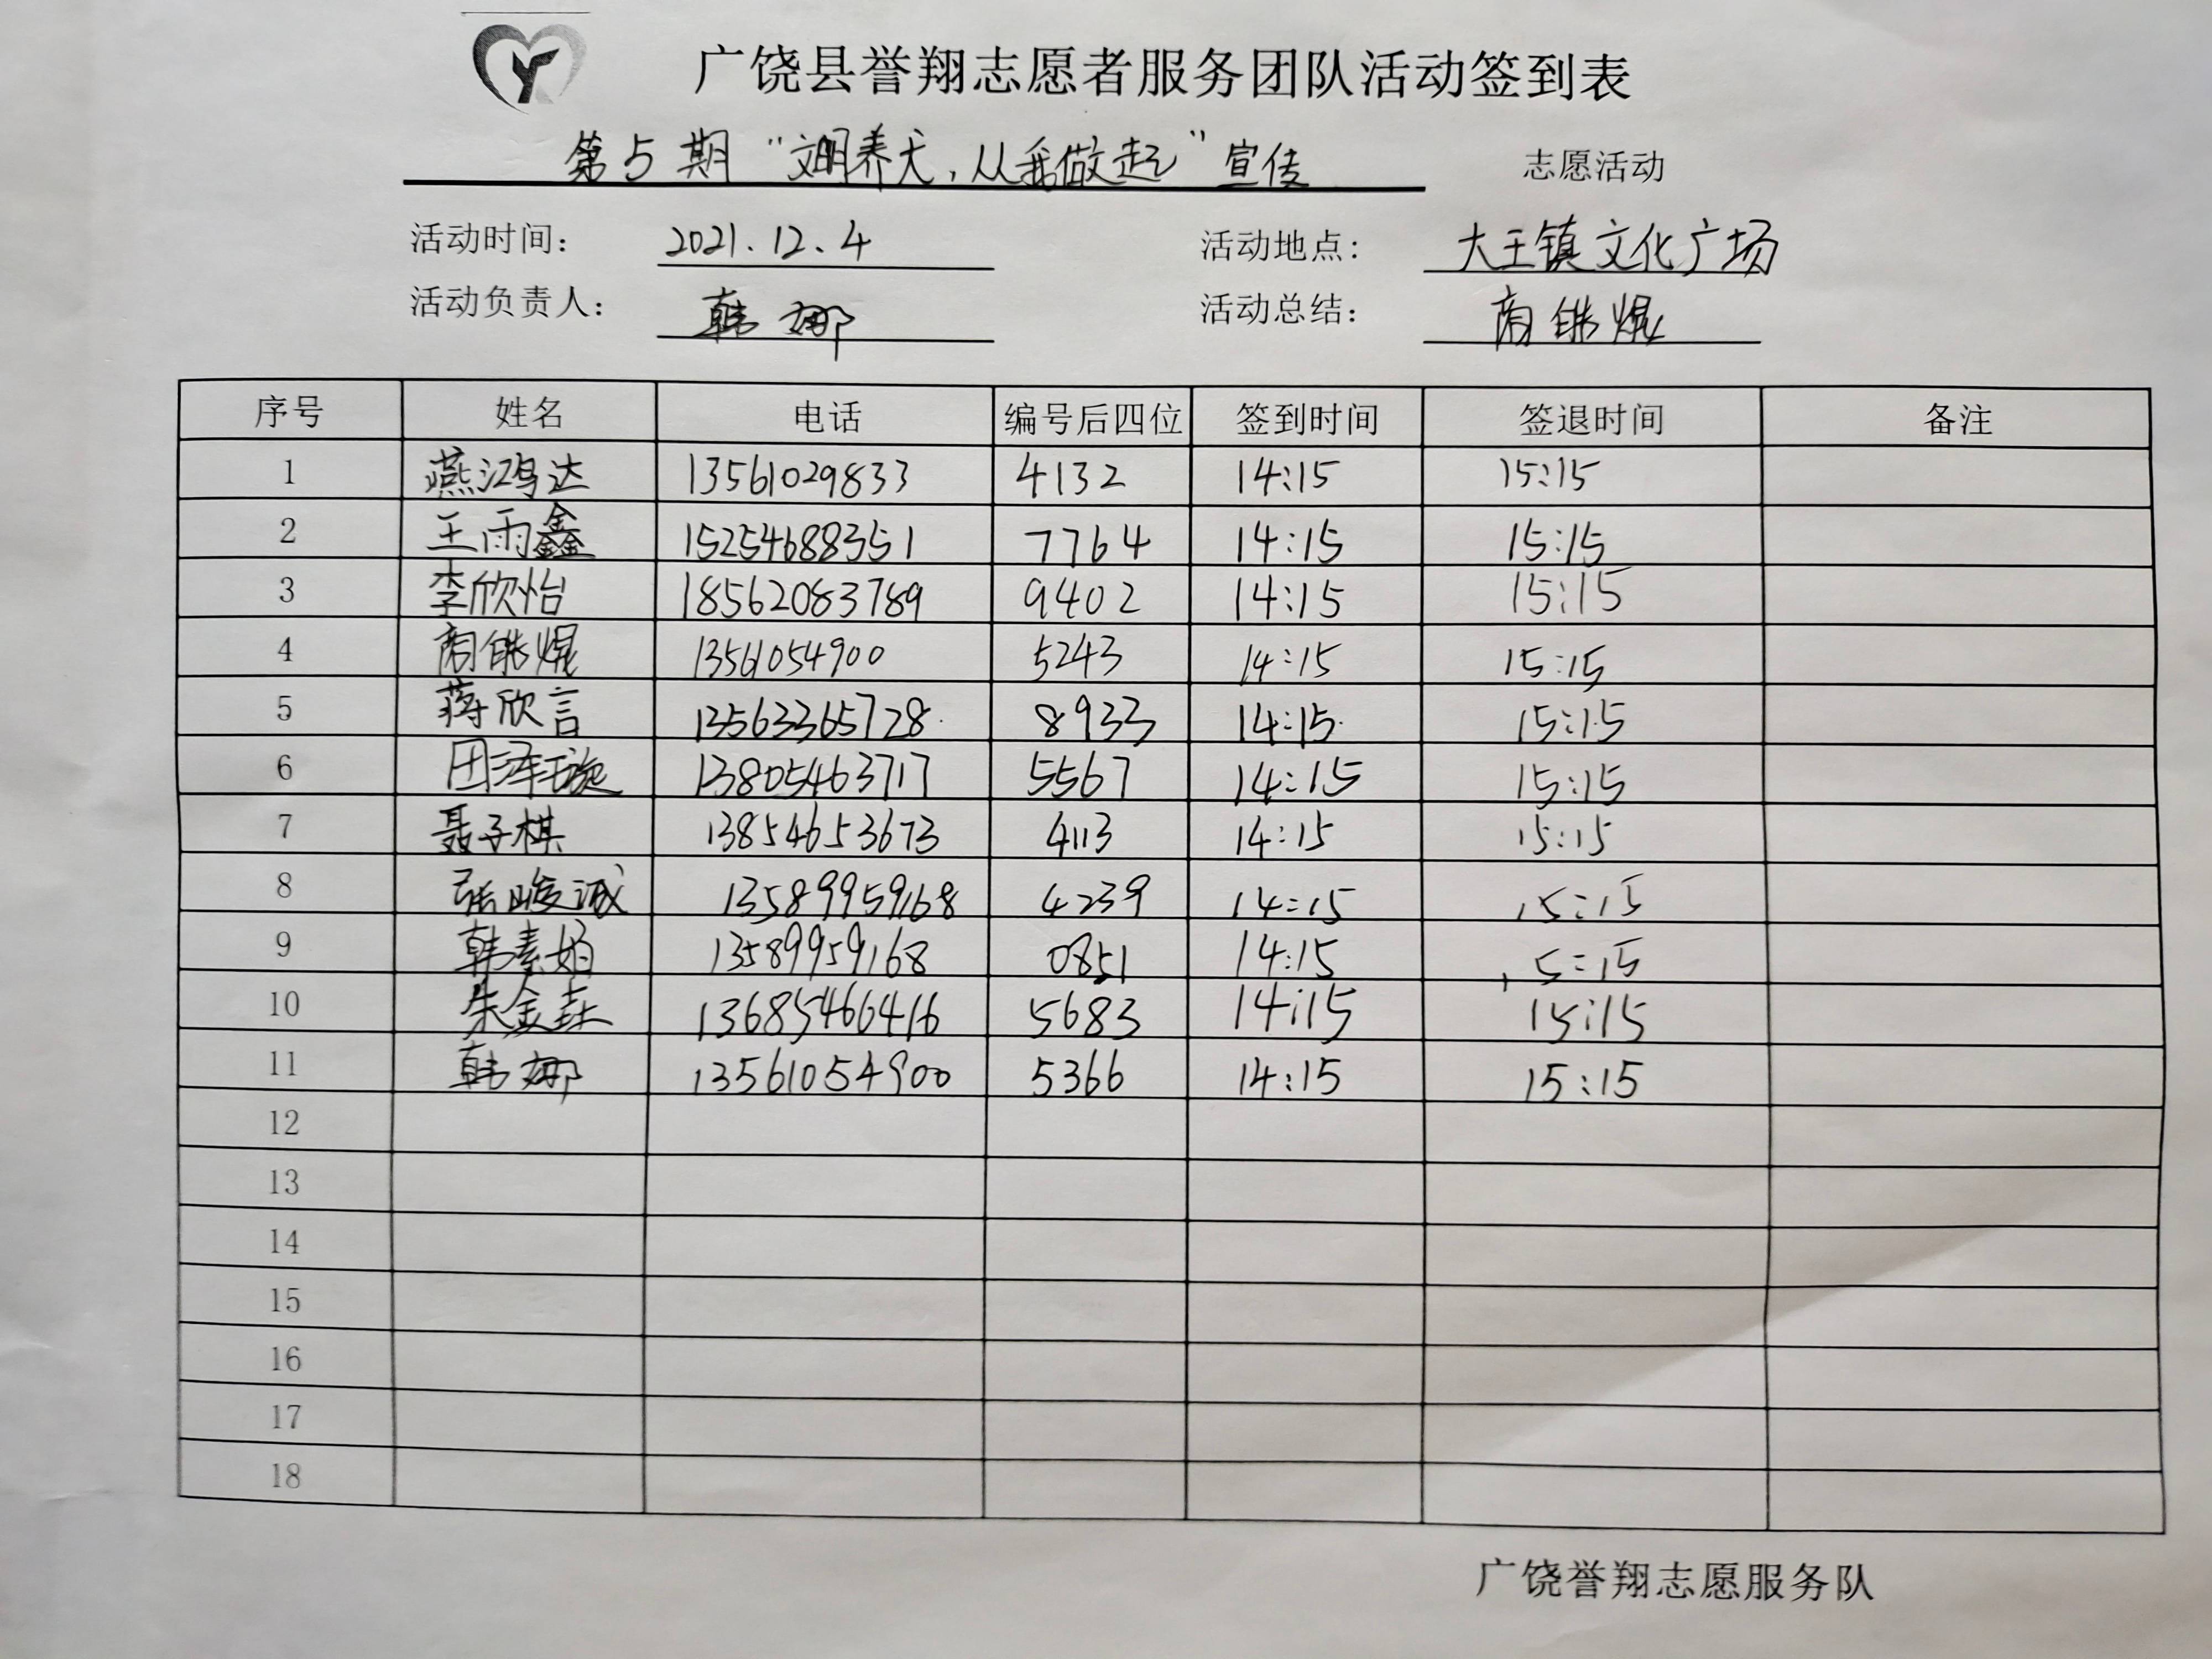 广饶县誉翔志愿者服务团队活动签到表
第5期“文明养犬,从我做起”宣传 志愿活动
活动时间: 2021.12.4 活动地点: 大王镇文化广场
活动负责人: 韩娜 活动总结: 商皓焜
序号 姓名 电话 编号后四位 签到时间 签退时间 备注
1 燕鸿达 13561029833 4132 14:15 15:15
2 王雨鑫 15254688351 7764 14:15 15:15
3 李欣怡 18562083789 9402 14:15 15:15
4 商皓焜 13561054900 5243 14:15 15:15
5 蒋欣言 13563365728 8933 14:15 15:15
6 田泽璇 13805463717 5567 14:15 15:15
7 聂子棋 13854653673 4113 14:15 15:15
8 张峻诚 13589959168 4239 14:15 15:15
9 韩素娟 13589959168 0851 14:15 15:15
10 朱金垚 13685466416 5683 14:15 15:15
11 韩娜 13561054900 5366 14:15 15:15
12
13
14
15
16
17
18
广饶誉翔志愿服务队